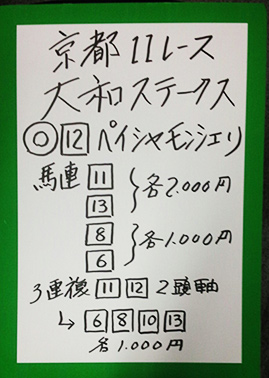 京都11レース
大和ステークス
◎12 ペイシャモンシェリ
馬連 11
13
} 各2.000円
8
6
} 各1.000円
3連複 11 12 2頭軸
↳ 6 8 10 13
各1.000円